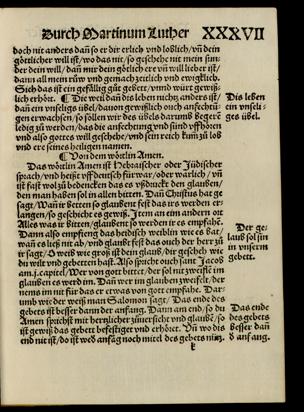 Durch Martinum Luther XXXVII
doch nit anders dañ so er dir erlich vnd loblich/ vñ dein
götlicher will ist/ wo das nit/ so geschehe nit mein sun-
der dein will/ dañ mir dein götlich ere vñ will lieber ist/
dann all mein rüw vnd gemach zeitlich vnd ewigklich.
Sich das ist ein gefällig gůt gebett/ vnnd würt gewiß-
lich erhört. ¶ Die weil dañ diß leben nichtz anders ist/
dañ ein vnseligs übel/ dauon gewißlich ouch anfechtū-
gen erwachsen/ so sollen wir des übels darumb begerē
ledig zů werden/ das die anfechtung vnd sünd vffhören
vnd also gottes will geschehe/ vnd sein reich kum zů lob
vnd ere seines heiligen namen.
Diß leben
ein vnseli-
ges übel.
¶ Von dem wörtlin Amen.
Das wörtlin Amen ist Hebraischer oder Jüdischer
sprach/ vnd heißt vff deutsch fürwar/ oder warlich/ vñ
ist fast wol zů bedencken das es vßdruckt den glauben/
den man haben sol in allen bitten. Dañ Christus hat ge
sagt/ Wañ ir bitten so glaubent fest das irs werden er-
langen/ so geschicht es gewiß. Item an eim andern ort
Alles was ir bitten/ glaubent so werden ir es empfahē.
Dann also empfieng das heidisch weiblin wie es bat/
wañ es ließ nit ab/ vnd glaubt fest das ouch der herr zů
ir sagt/ O weib wie groß ist dein glaub/ dir gescheh wie
du wilt vnd gebetten hast. Also spricht ouch sant Jacob
am.j.capitel/ Wer von gott bittet/ der sol nit zweiflē im
glauben es werd im. Dañ wer im glauben zweifelt/ der
niems im nit für das er etwas von gott empfahe. Dar-
umb wie der weiß man Salomon sagt/ Das ende des
gebets ist besser dann der anfang. Dann am end/ so du
Amen sprichst mit hertzlicher zůuersicht vnd glaubē/ so
ist gewiß das gebett befestiget vnd erhöret. Vñ wo diß
end nit ist/ do ist wed̄ anfāg noch mittel des gebets nütz.
Der ge-
laub sol sin
in vnserm
gebett.
Das ende
des gebets
besser dañ
d̄ anfang.